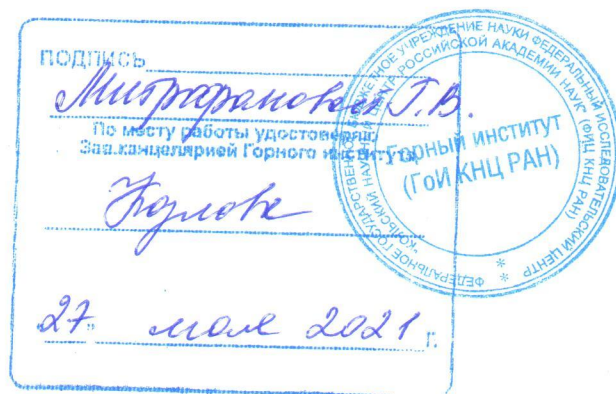 ПОДПИСЬ
Митрофановой Г.В.
По месту работы удостоверяю
Зав.канцелярией Горного института
27" мая 2021 г.
ФЕДЕРАЛЬНОЕ ГОСУДАРСТВЕННОЕ БЮДЖЕТНОЕ УЧРЕЖДЕНИЕ НАУКИ ФЕДЕРАЛЬНЫЙ ИССЛЕДОВАТЕЛЬСКИЙ ЦЕНТР
"КОЛЬСКИЙ НАУЧНЫЙ ЦЕНТР РОССИЙСКОЙ АКАДЕМИИ НАУК" (ФИЦ КНЦ РАН)
Горный институт
(ГоИ КНЦ РАН)